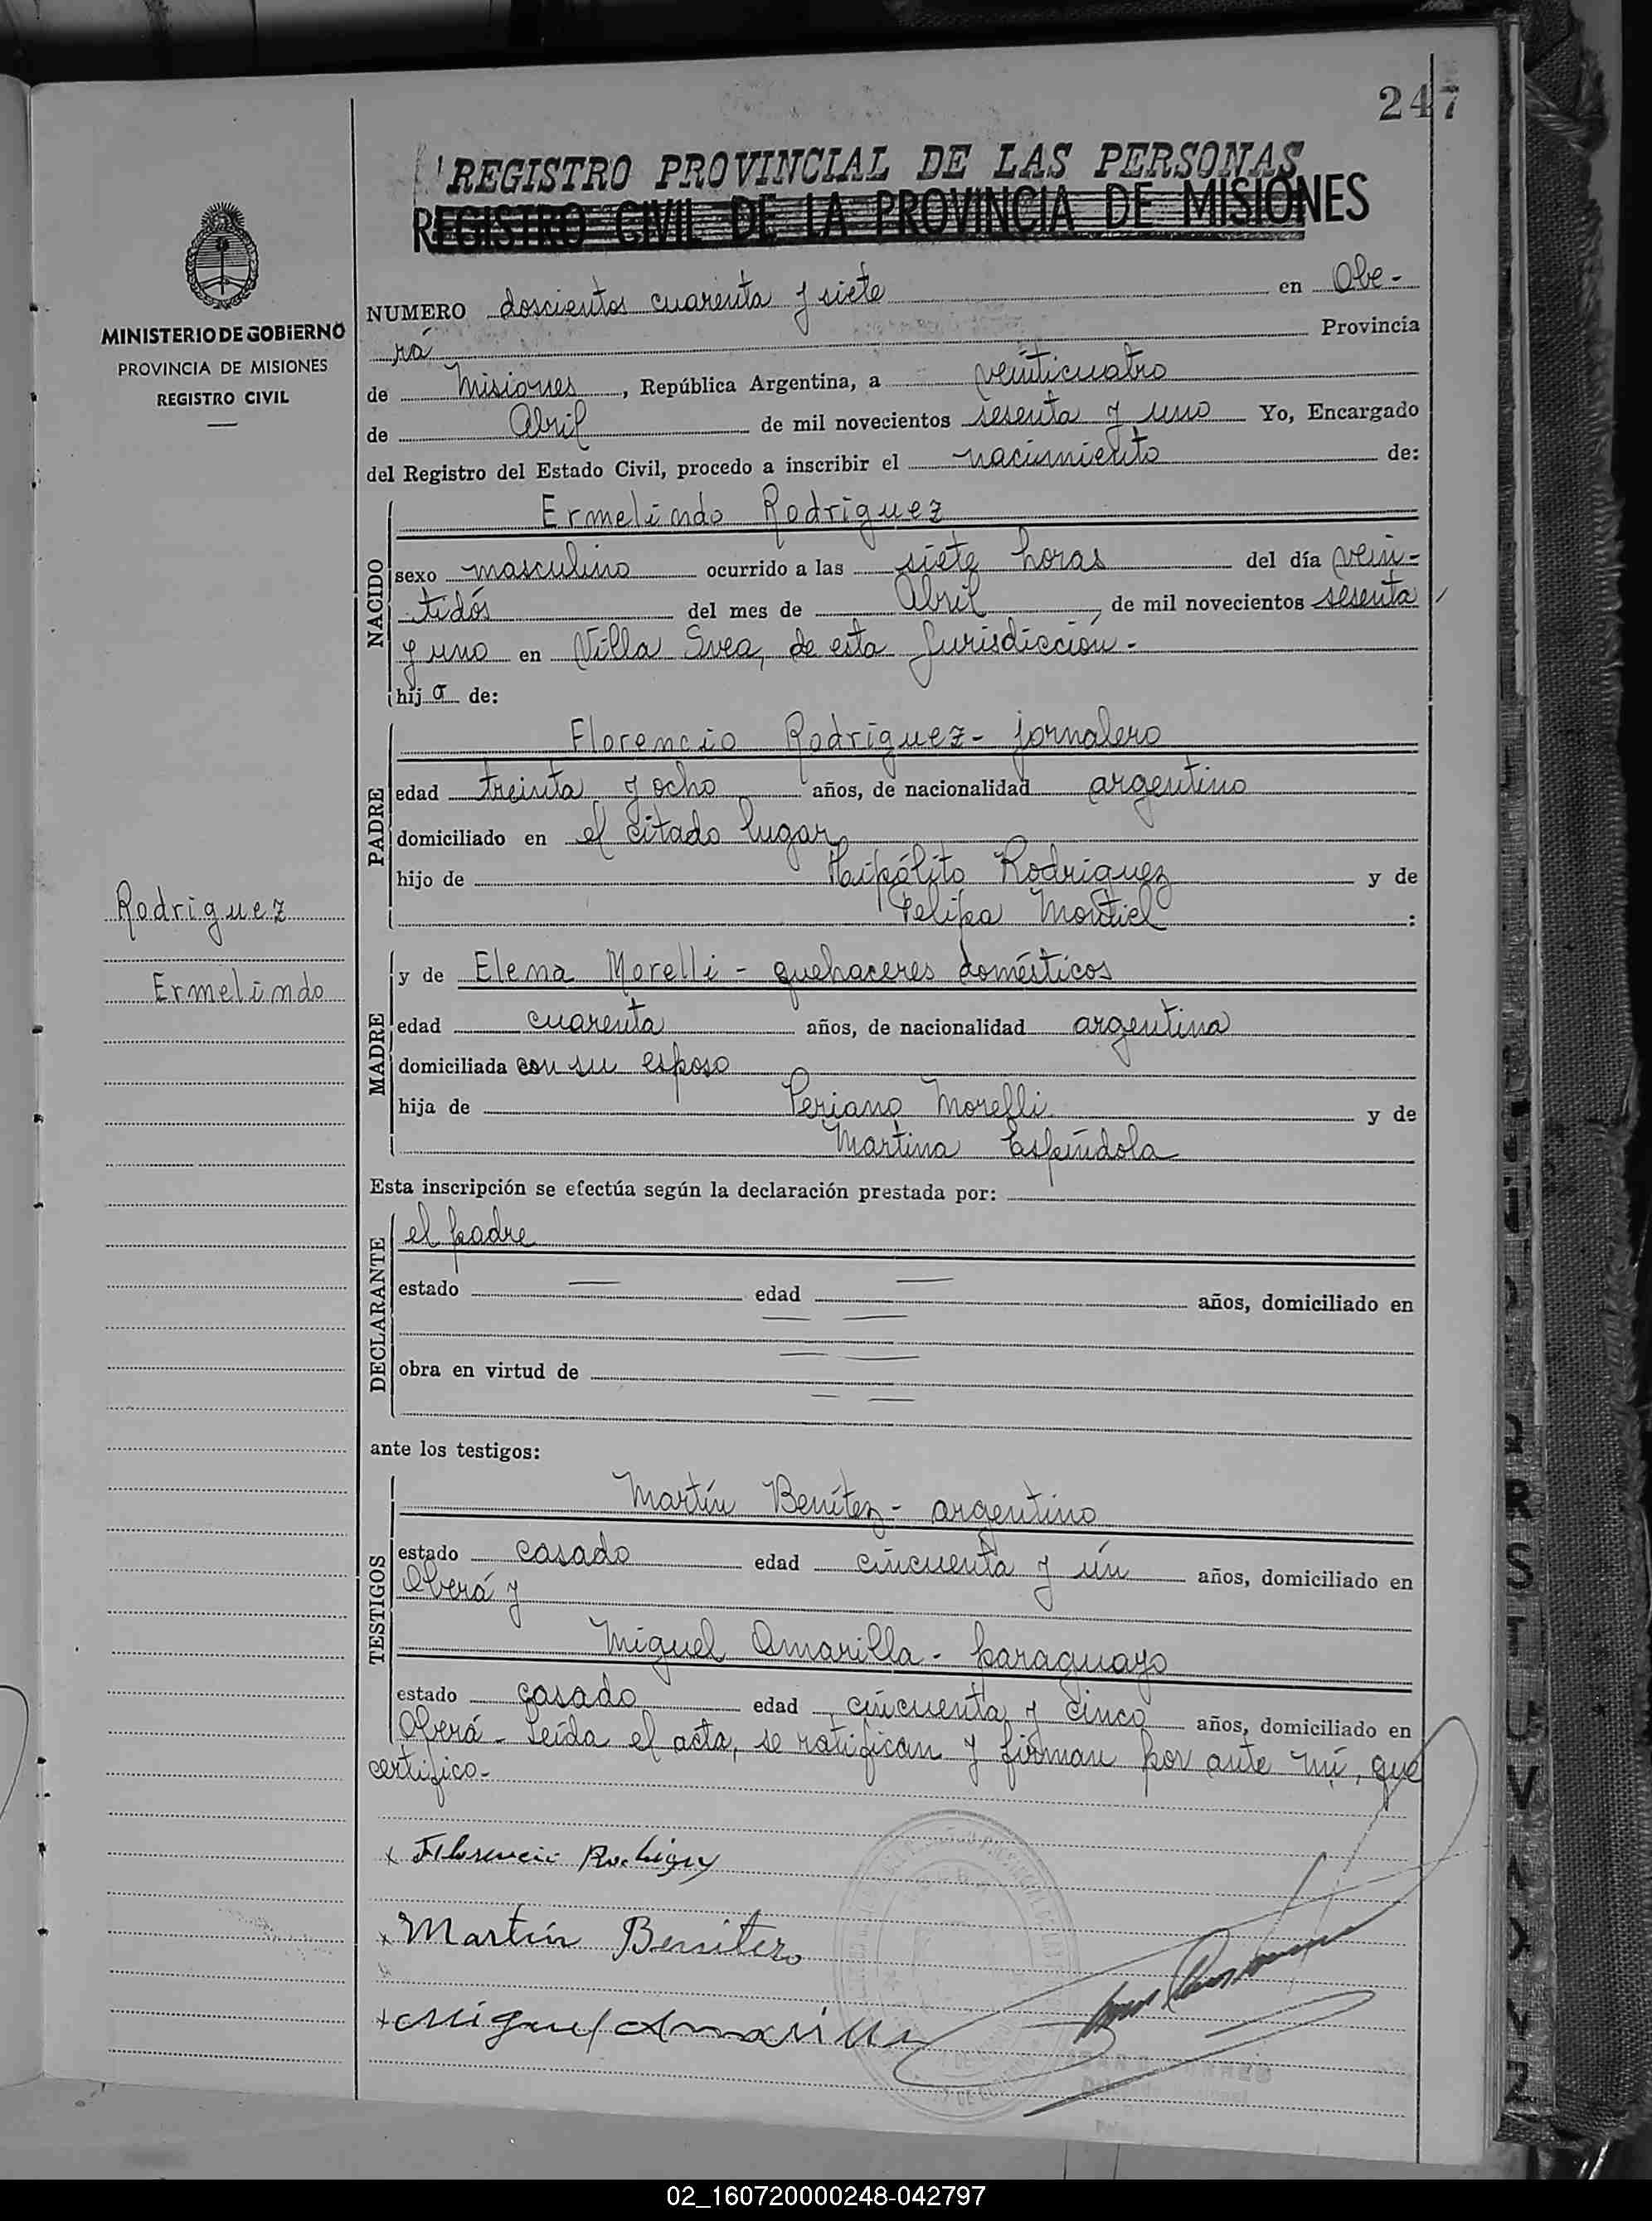 247
REGISTRO PROVINCIAL DE LAS PERSONAS
REGISTRO CIVIL DE LA PROVINCIA DE MISIONES
MINISTERIO DE GOBIERNO
PROVINCIA DE MISIONES
REGISTRO CIVIL
NUMERO doscientos cuarenta y siete en Obe-
rá Provincia
de Misiones, República Argentina, a veinticuatro
de Abril de mil novecientos sesenta y uno Yo, Encargado
del Registro del Estado Civil, procedo a inscribir el nacimiento de:
NACIDO
Ermelindo Rodriguez
sexo masculino ocurrido a las siete horas del día vein-
tidós del mes de Abril, de mil novecientos sesenta
y uno en Villa Svea, de esta Jurisdicción.-
hijo de:
PADRE
Florencio Rodriguez- jornalero
edad treinta y ocho años, de nacionalidad argentino
domiciliado en el citado lugar
hijo de Haipólito Rodriguez y de
Felipa Montiel :
Rodriguez
Ermelindo
MADRE
y de Elena Morelli - quehaceres domésticos
edad cuarenta años, de nacionalidad argentina
domiciliada con su esposo
hija de Periano Morelli y de
Martina Espíndola
Esta inscripción se efectúa según la declaración prestada por:
DECLARANTE
el padre
estado — edad — años, domiciliado en
— —
obra en virtud de — —
— —
ante los testigos:
TESTIGOS
Martín Benítez - argentino
estado casado edad cincuenta y ún años, domiciliado en
Oberá y
Miguel Amarilla - paraguayo
estado casado edad cincuenta y cinco años, domiciliado en
Oberá - Leída el acta, se ratifican y firman por ante mí, que
certifico.-
x Florencio Rodriguez
x Martín Benitez
x Miguel Amarilla
02_160720000248-042797